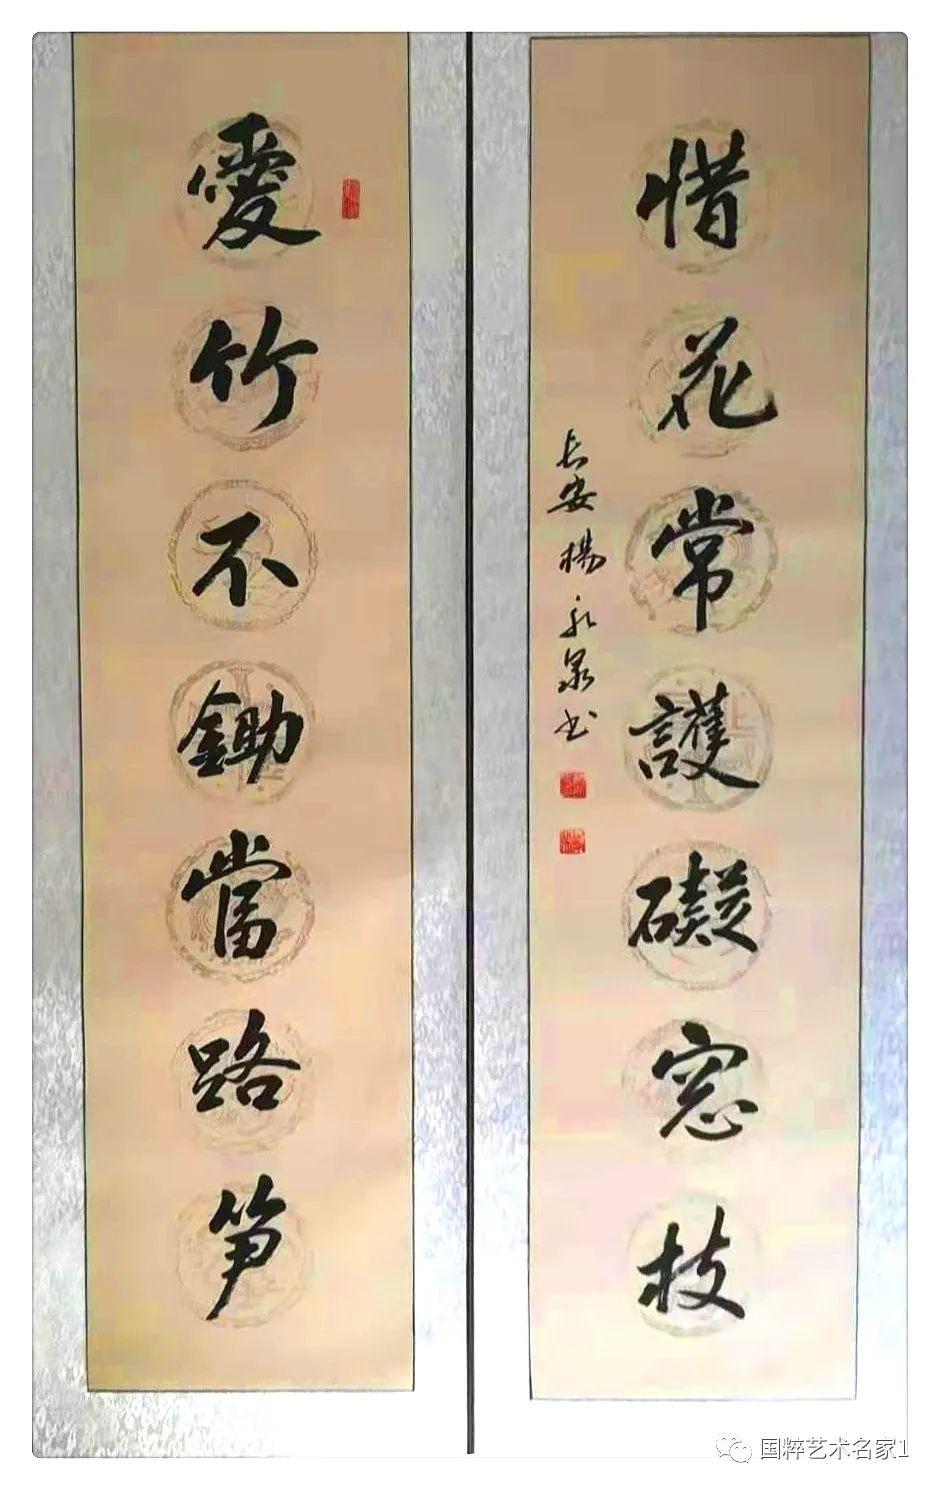 惜花常護礙窓枝
長安楊永泉书
愛竹不鋤當路笋
国粹艺术名家1